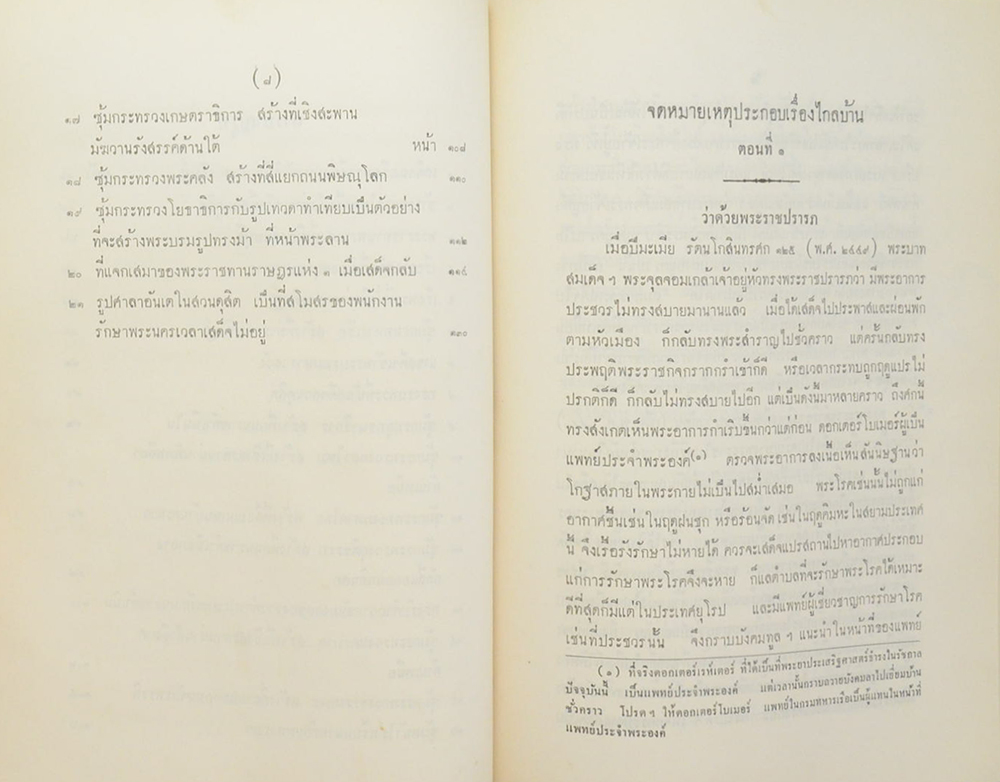 (๘)
๑๗ ซุ้มกระทรวงเกษตราธิการ สร้างที่เชิงสะพาน
มัฆวานรังสรรค์ด้านใต้ หน้า ๑๐๘
๑๘ ซุ้มกระทรวงพระคลัง สร้างที่สี่แยกถนนพิษณุโลก ๑๑๐
๑๙ ซุ้มกระทรวงโยธาธิการกับรูปเทวดาทำเทียบเป็นตัวอย่าง
ที่จะสร้างพระบรมรูปทรงม้า ที่หน้าพระลาน ๑๑๒
๒๐ ที่แจกเสมาของพระราชทานราษฎรแห่ง ๑ เมื่อเสด็จกลับ ๑๑๔
๒๑ รูปศาลาอันเตในสวนดุสิต เป็นที่สโมสรของพนักงาน
รักษาพระนครเวลาเสด็จไม่อยู่ ๑๓๐
จดหมายเหตุประกอบเรื่องไกลบ้าน
ตอนที่ ๑
ว่าด้วยพระราชปรารภ
เมื่อปีมะเมีย รัตนโกสินทรศก ๑๒๕ (พ.ศ. ๒๔๔๙) พระบาท
สมเด็จ ฯ พระจุลจอมเกล้าเจ้าอยู่หัวทรงพระราชปรารภว่า มีพระอาการ
ประชวรไม่ทรงสบายมานานแล้ว เมื่อได้เสด็จไปประพาสและผ่อนพัก
ตามหัวเมือง ก็กลับทรงพระสำราญไปชั่วคราว แต่ครั้นกลับทรง
ประพฤติพระราชกิจกรากกรำเข้าก็ดี หรือเวลากระทบถูกฤดูแปรไม่
ปรกติก็ดี ก็กลับไม่ทรงสบายไปอีก แต่เป็นดังนี้มาหลายคราว ถึงศกนี้
ทรงสังเกตเห็นพระอาการกำเริบขึ้นกว่าแต่ก่อน ดอกเตอร์โบเมอร์ผู้เป็น
แพทย์ประจำพระองค์(๑) ตรวจพระอาการลงเนื้อเห็นสันนิษฐานว่า
โกฐาสภายในพระกายไม่เป็นไปสม่ำเสมอ พระโรคเช่นนั้นไม่ถูกแก่
อากาศชื้นเช่นในฤดูฝนชุก หรือร้อนจัด เช่นในฤดูคิมหะในสยามประเทศ
นี้ จึงเรื้อรังรักษาไม่หายได้ ควรจะเสด็จแปรสถานไปหาอากาศประกอบ
แก่การรักษาพระโรคจึงจะหาย ก็แลตำบลที่จะรักษาพระโรคได้เหมาะ
ดีที่สุดก็มีแต่ในประเทศยุโรป และมีแพทย์ผู้เชี่ยวชาญการรักษาโรค
เช่นที่ประชวรนั้น จึงกราบบังคมทูล ฯ แนะนำในหน้าที่ของแพทย์
(๑) ที่จริงดอกเตอร์เรห์เตอร์ ที่ได้เป็นที่พระยาประเสริฐศาสตร์ธำรงในรัชกาล
ปัจจุบันนี้ เป็นแพทย์ประจำพระองค์ แต่เวลานั้นกราบถวายบังคมลาไปเยี่ยมบ้าน
ชั่วคราว โปรด ฯ ให้ดอกเตอร์โบเมอร์ แพทย์ในกรมทหารเรือเป็นผู้แทนในหน้าที่
แพทย์ประจำพระองค์